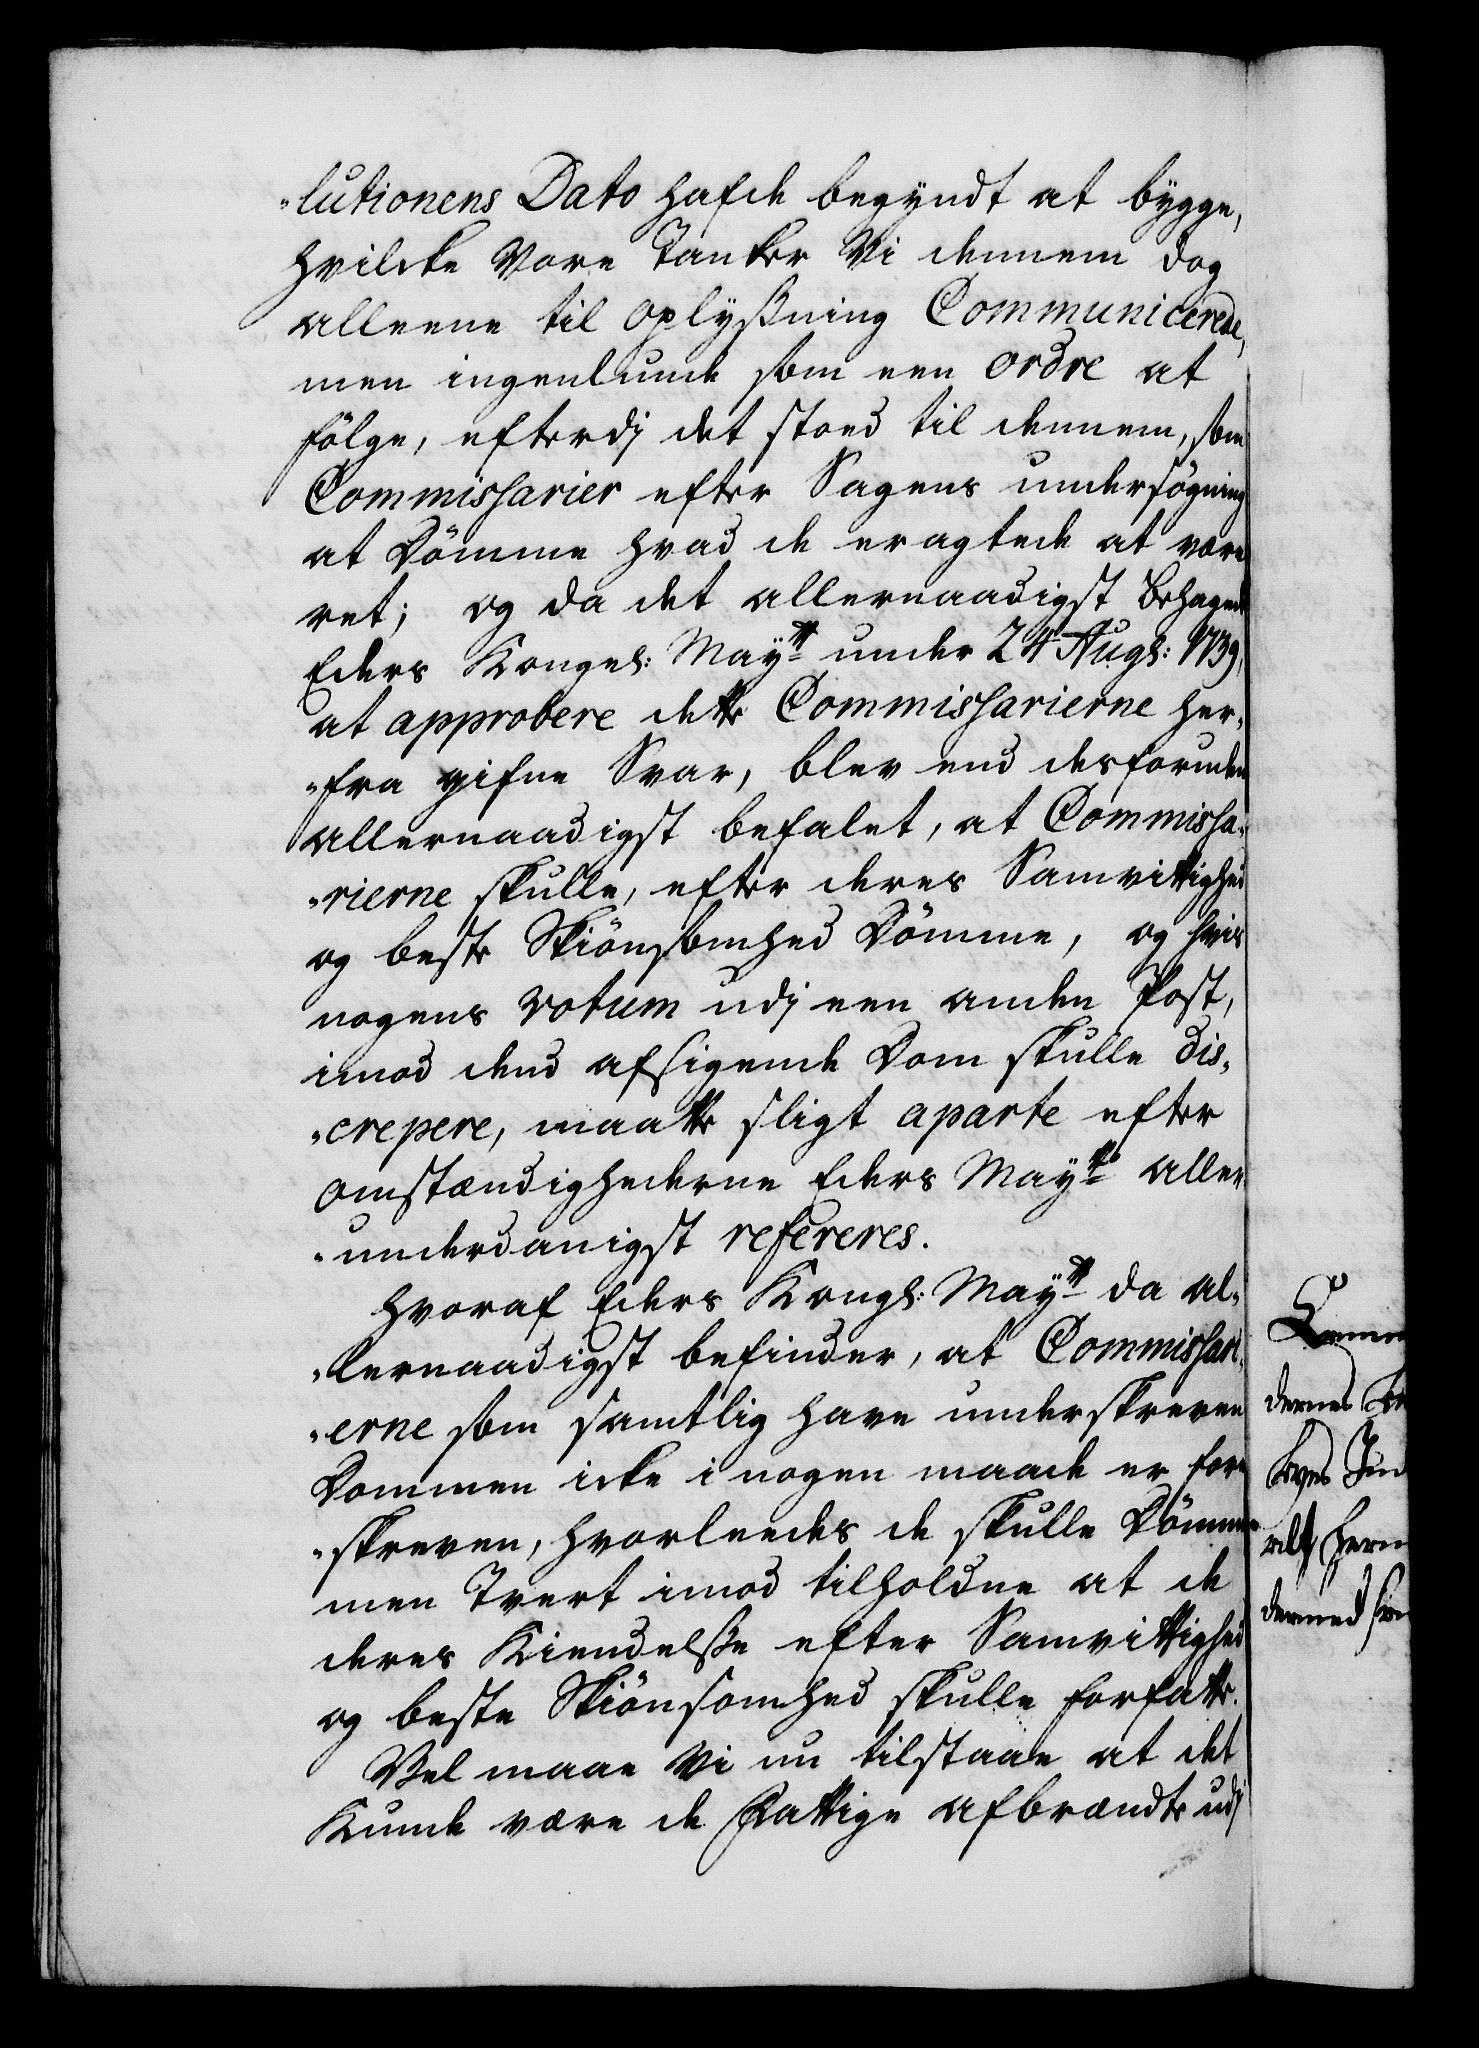 „lutionens Dato hafde begyndt at bygge,
hvilcke Vore Tanker Vi dennem dog
alleene til oplysßning Communicerede,
men ingenlunde som een ordre at
følge, efterdj det stoed til dennem, som
Commissarier efter Sagens undersøgning
at Dömme hvad de eragtede at være
ret; og da det allernaadigst behagede
Eders Kongel: Mayts under 24 Augs: 1739,
at approbere dette Commissarierne her„
„fra gifne Svar, blev end desforuden
allernaadigst befalet, at Commissa„
„rierne skulle, efter deres Samvittighed
og beste Skiönsomhed Dömme, og hvis
nogens votum udj een anden Post,
imod dend afsigende Dom skulle dis„
„crepere, maatte sligt aparte efter
omstændighederne Eders Mayts aller
„underdanigst refereres.
Hvoraf Eders Kongl: Mayts da al„
„lernaadigst befinder, at Commissari„
„erne som samtlig have underskreven
Dommen icke i nogen maade er fore
„skreven, hvorleedes de skulle Dömme
men Tvert imod tilholdne at de
deres Kiendelße efter Samvittighed
og beste Skiönsomhed skulle forfatte.
Vel maae Vi nu tilstaae at det
Kunde være de Fattige afbrændte udj
dernes
Jun
dermed